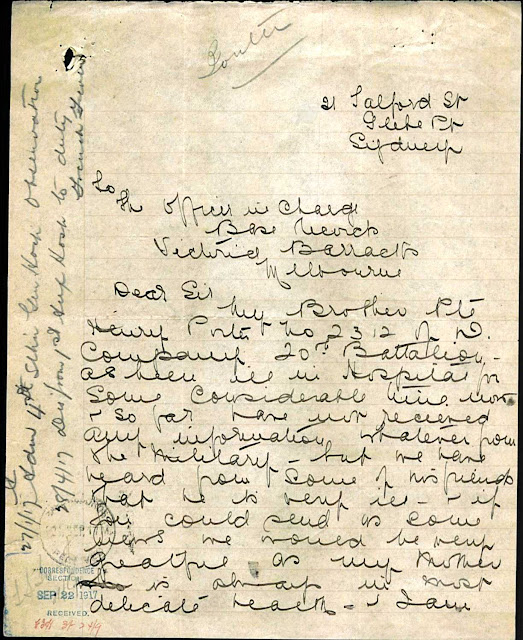 21 Talford St
Glebe Pt
Sydney
To
the Officer in Charge
Base Records
Victoria Barracks
Melbourne
Dear Sir
My Brother Pte
Henry Porter No 2312 of D.
Company 20th Battalion -
as been ill in Hospital for
some considerable time now
- so far have not recieved
any information whatever from
the Military - but we have
heard from some of his friends
that he is very ill - if
you could send us some
news we would be very
greatful as my Mother
is always in most
delicate health - I am
27/1/17 Adm 4th Gen Hosp Observation
28/4/17 Dis from 1st Aux Hosp to duty
CORRESPONDENCE
SECTION
SEP 22 1917
RECEIVED.